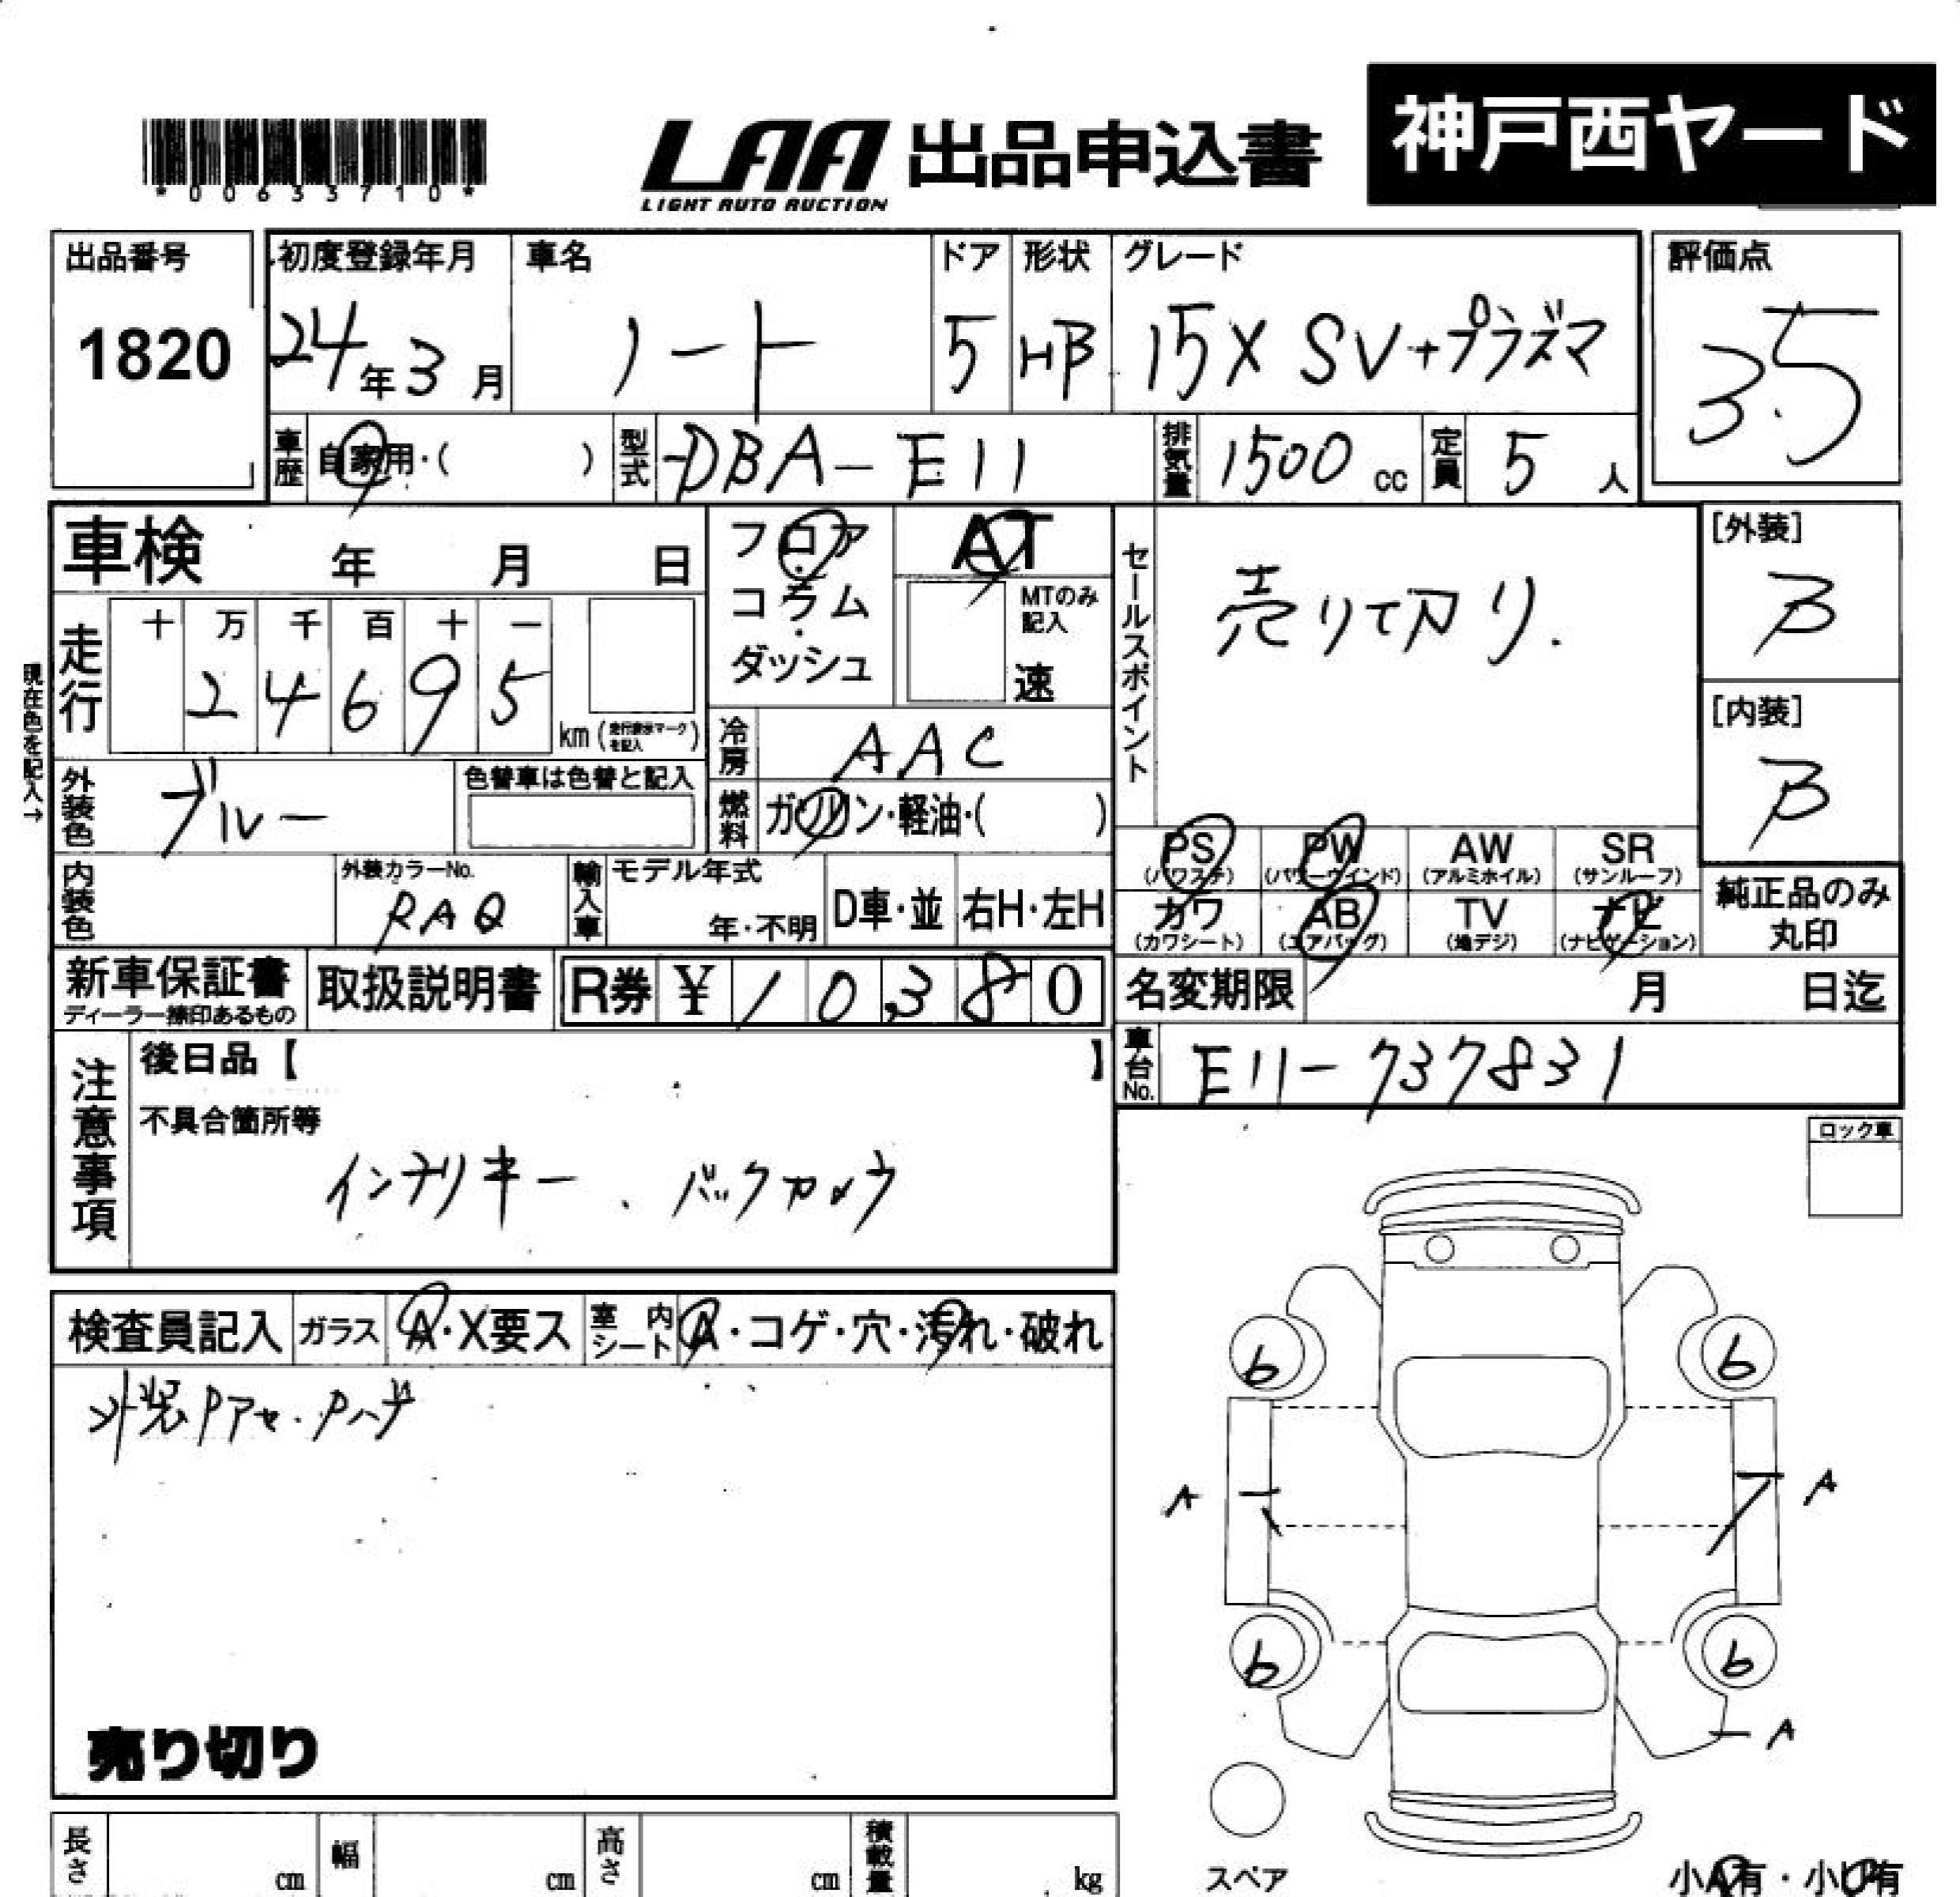 神戸西ヤード
*00633710*
LAA 出品申込書
LIGHT AUTO AUCTION
出品番号
1820
初度登録年月
24年3月
車名
ノート
ドア
5
形状
HB
グレード
15X SV+プラズマ
評価点
3.5
車歴 自家用・( )
型式 DBA-E11
排気量 1500cc
定員 5人
車検 年 月 日
フロア・コラム・ダッシュ
AT
MTのみ記入
速
セールスポイント
売りて切り.
[外装]
B
[内装]
B
現在色を記入→
走行
十 万 千 百 十 一
2 4 6 9 5
km (走行表示マークを記入)
冷房 AAC
外装色 ブルー
色替車は色替と記入
燃料 ガソリン・軽油・( )
PS (パワステ)
PW (パワーウインド)
AW (アルミホイル)
SR (サンルーフ)
カワ (カワシート)
AB (エアバッグ)
TV (地デジ)
ナビ (ナビゲーション)
純正品のみ丸印
内装色
外装カラーNo.
RAQ
輸入車
モデル年式
年・不明
D車・並
右H・左H
新車保証書
ディーラー捺印あるもの
取扱説明書
R券 ¥ 10,380
名変期限 月 日迄
車台No. E11-737831
注意事項
後日品【 】
不具合箇所等
インテリキー、バックカメラ
ロック車
検査員記入
ガラス A・X要ス
室内シート A・コゲ・穴・汚れ・破れ
外装Pアセ.Pハゲ
売り切り
6 6
A A
6 6
A
スペア
小A有・小U有
長さ cm
幅 cm
高さ cm
積載量 kg